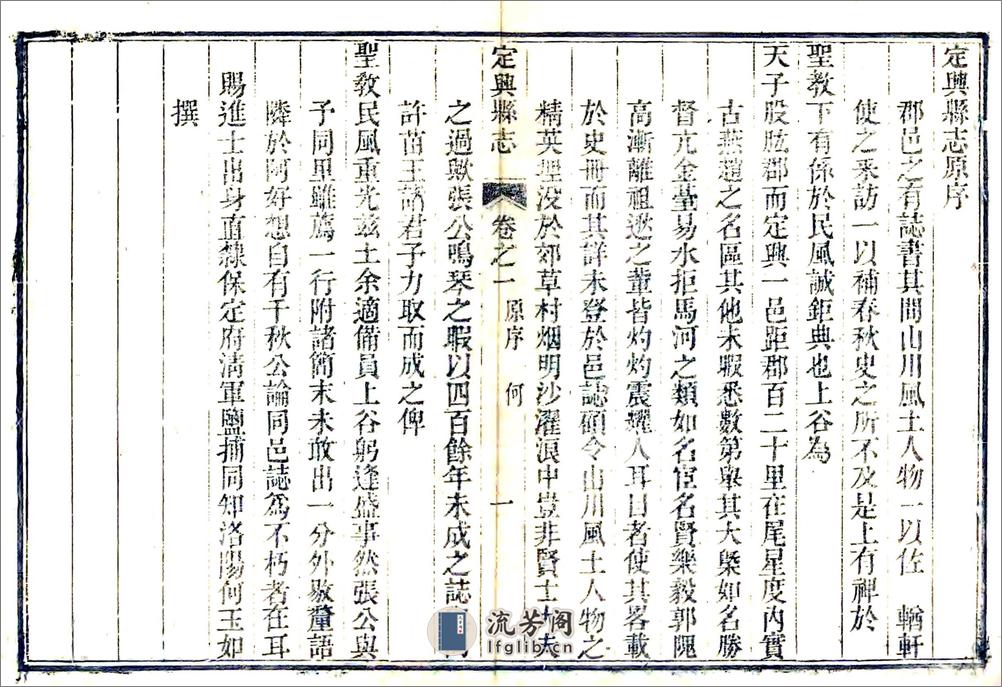 定興縣志原序
郡邑之有誌書其間山川風土人物一以佐 輶軒
使之采訪一以補春秋史之所不及是上有裨於
聖教下有係於民風誠鉅典也上谷為
天子股肱郡而定興一邑距郡百二十里在尾星度內實
古燕趙之名區其他未暇悉數第舉其大槩如名勝
督亢金臺易水拒馬河之類如名宦名賢樂毅郭隗
高漸離祖逖之輩皆灼灼震耀人耳目者使其畧載
於史冊而其詳未登於邑誌頋令山川風土人物之
精英埋没於郊草村烟明沙濯浪中豈非賢士大夫
定興縣志 卷之一 原序 何 一
之過歟張公鳴琴之暇以四百餘年未成之誌
許苗王諸君子力取而成之俾
聖教民風重光兹土余適備員上谷躬逢盛事然張公與
予同里雖薦一行附諸簡末未敢出一分外敭釐語
隣於阿好想自有千秋公論同邑誌爲不朽者在耳
賜進士出身直隸保定府清軍鹽捕同知洛陽何玉如
撰
流芳阁
lfglib.cn